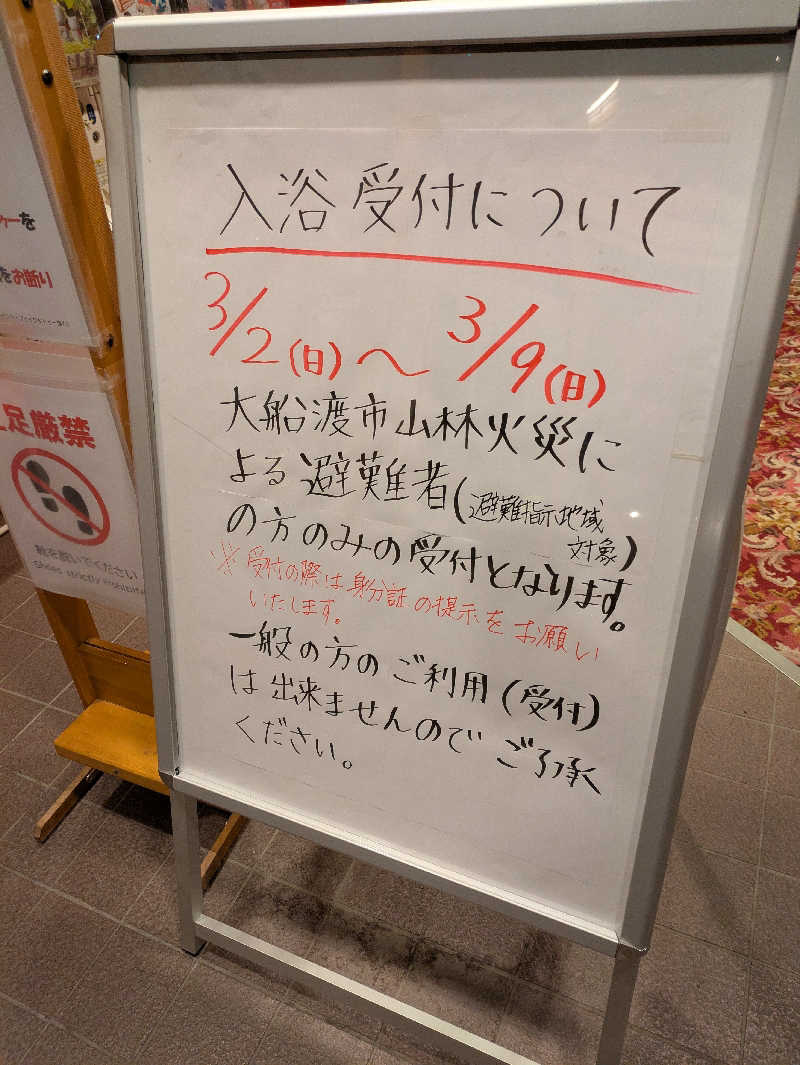 入浴受付について
3/2(日)～3/9(日)
大船渡市山林火災に
よる避難者(避難指示地域
対象)
の方のみの受付となります。
※受付の際は身分証の提示をお願い
いたします。
一般の方のご利用(受付)
は出来ませんのでご了承
ください。
を
をお断り
足厳禁
靴を脱いでください
Shoes strictly